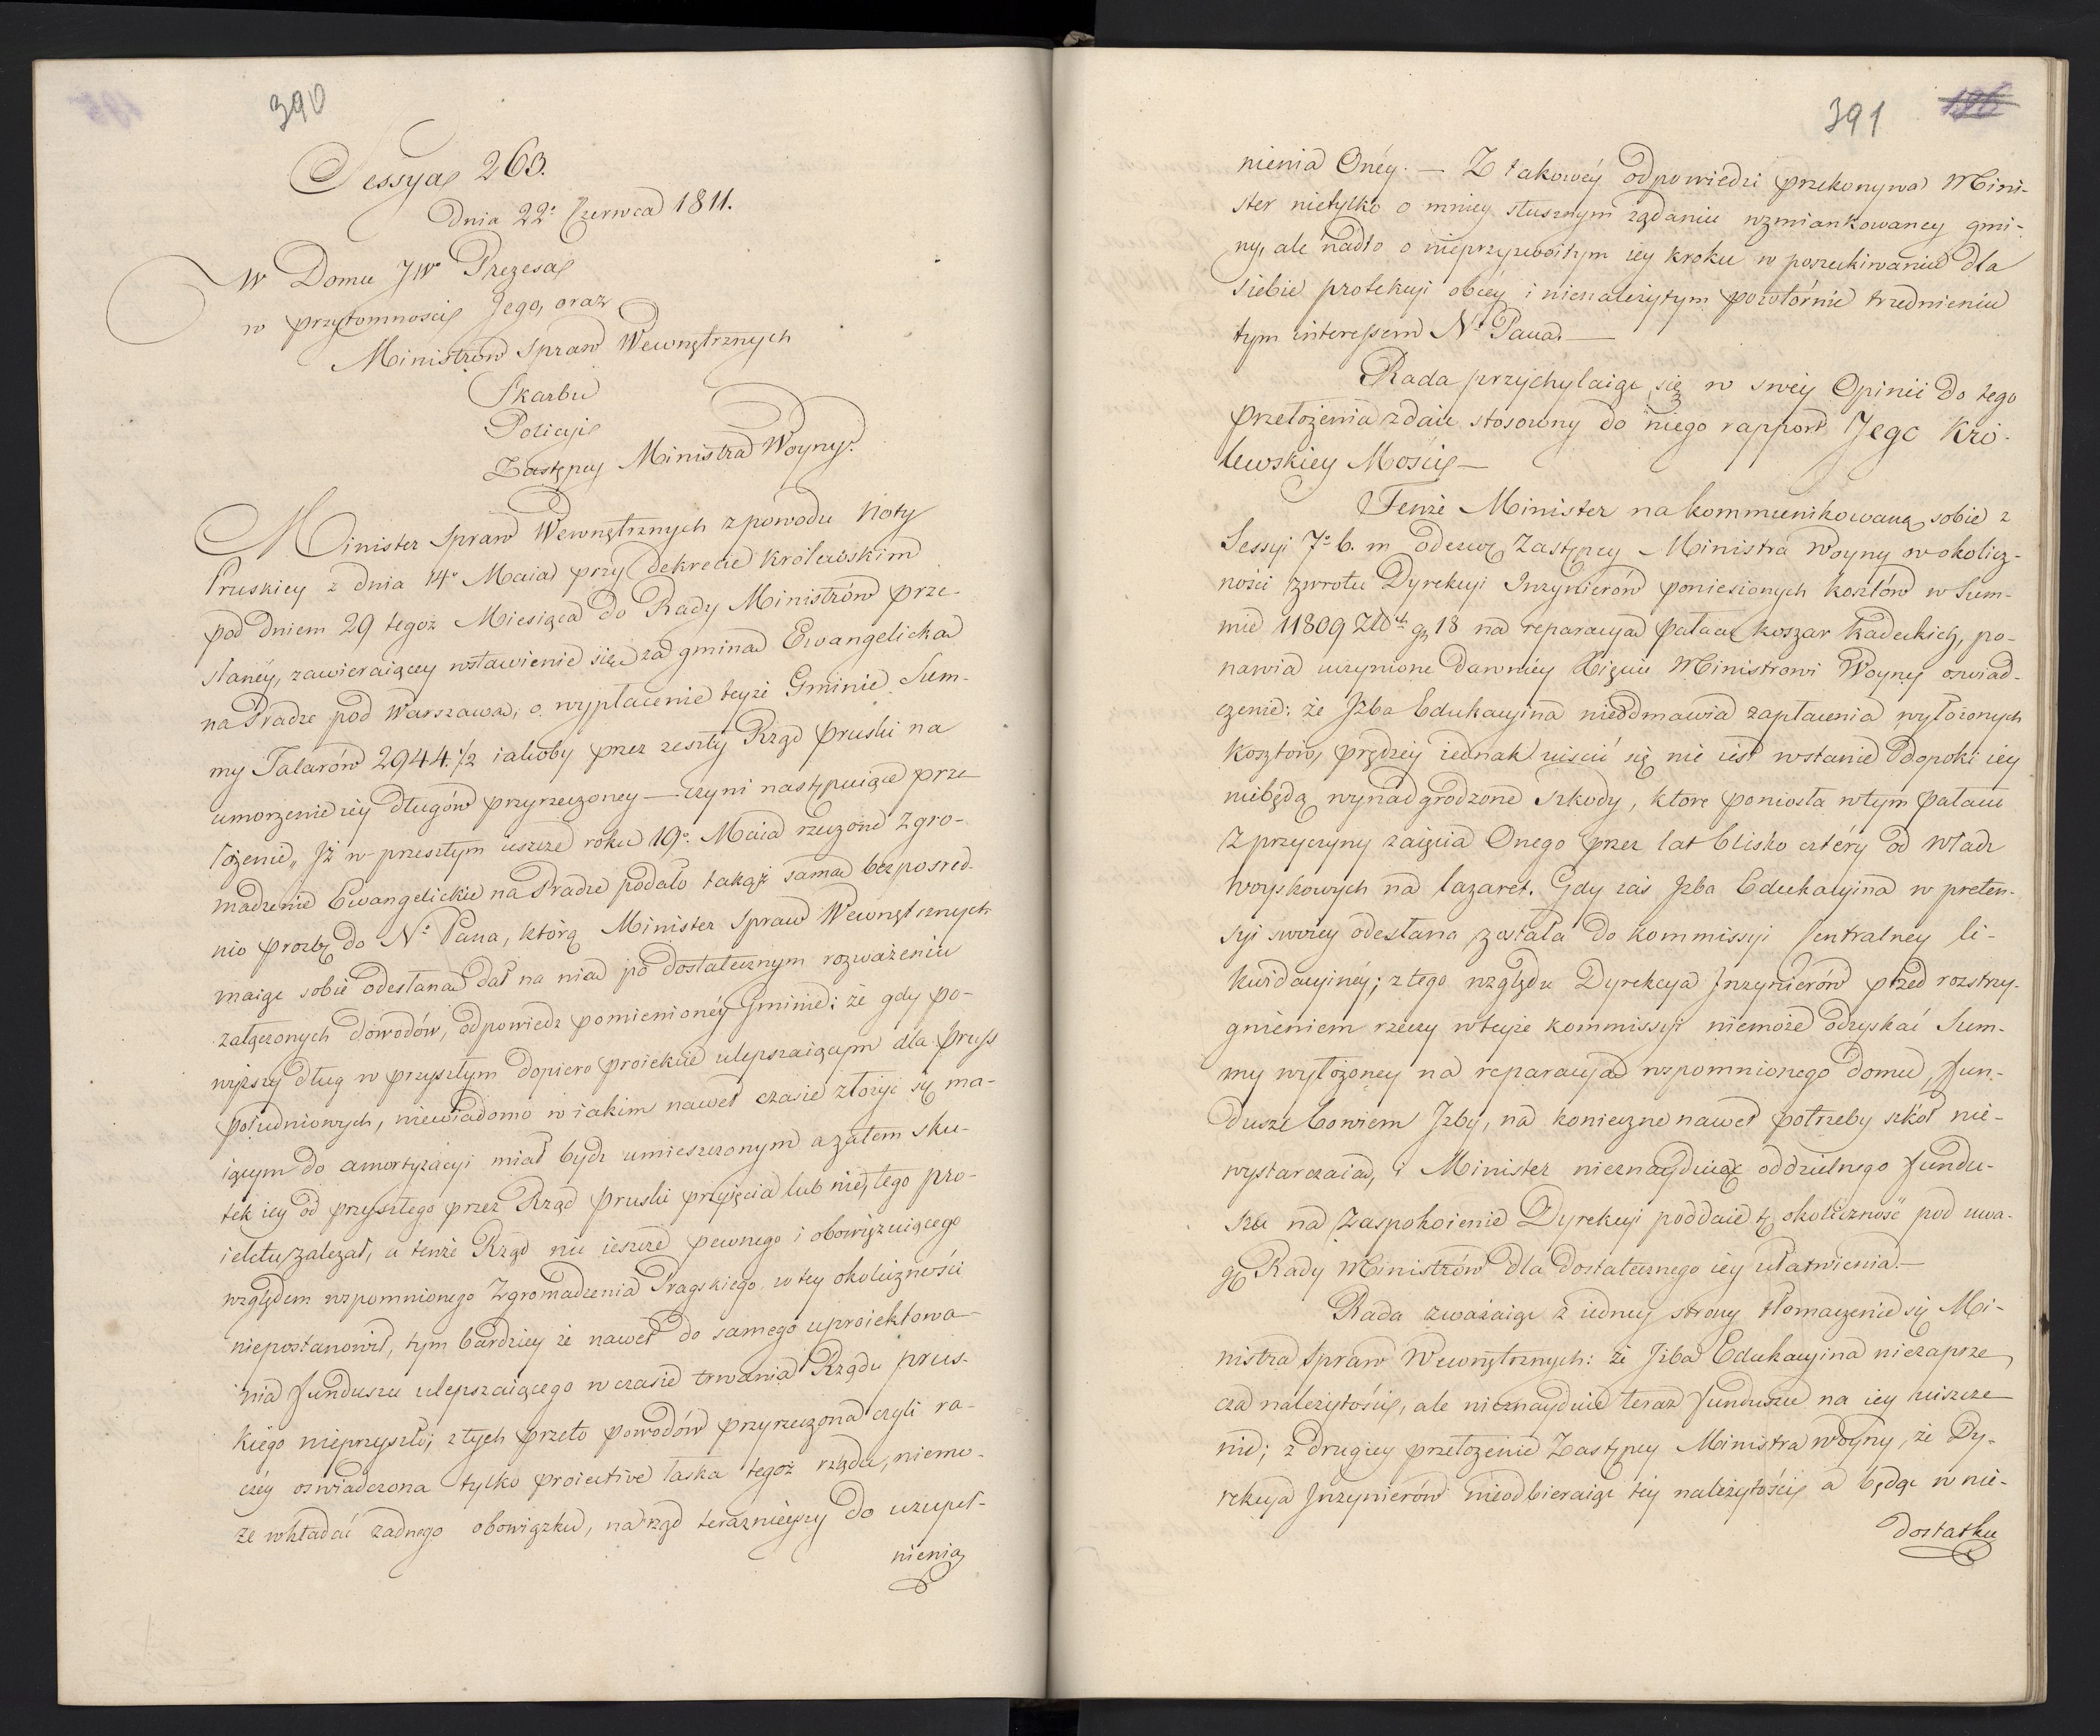 390
Sessya 263.
Dnia 22º Czerwca 1811.
W Domu JWº Prezesa
w przytomności Jego, oraz
Ministrów Spraw Wewnętrznych
Skarbu
Policyi
Zastępcy Ministra Woyny.
Minister Spraw Wewnętrznych z powodu Noty
Pruskiey z dnia 14º Maia przy Dekrecie Królewskim
pod dniem 29 tegoż Miesiąca do Rady Ministrów prze-
słanéy, zawieraiącey wstawienie się za gmina Ewangelicka
na Pradze pod Warszawa, o wypłacenie teyże Gminie Sum-
my Talarów 2944.½ iakoby przez zeszły Rząd Pruski na
umorzenie iéy długów przyrzeczoney — czyni następuiące prze-
łożenie „ Iż w przeszłym ieszcze roku 19º Maia rzeczone Zgro-
madzenie Ewangelickie na Pradze podało takąż sama bezpośred-
nio proźbę do Nº Pana, którą Minister Spraw Wewnętrznych
maiąc sobie odesłana dał na nia po dostatecznym rozważeniu
załączonych dowodów, odpowiedz pomienionéy Gminie: że gdy po-
wyższy dług w przyszłym dopiero proiekcie ulepszaiącym dla Pruss
południowych, niewiadomo w iakim nawet czasie złożyć się ma-
iącym do amortyzacyi miał bydz umieszczonym a zatem sku-
tek iey od przyszłego przez Rząd Pruski przyięcia lub nie, tego pro-
iektu zależał, a tenże Rząd nic ieszcze pewnego i obowięzuiącego
względem wspomnionego Zgromadzenia Pragskiego w tey okoliczności
niepostanowił, tym bardziey że nawet do samego uproiektowa-
nia funduszu ulepszaiącego w czasie trwania Rządu prus-
kiego nieprzyszło; z tych przeto powodów przyrzeczona czyli ra-
czéy oswiadczona tylko proiective łaska tegoż rządu, niemo-
że wkładać żadnego obowiązku, na rząd teraznieyszy do uzupeł-
nienia
391
nienia Onéy. — Z takowéy odpowiedzi przekonywa Mini-
ster nietylko o mniey słusznym żądaniu wzmiankowaney gmi-
ny, ale nadto o nieprzyzwoitym iey kroku w poszukiwaniu dla
siebie protekcyi obcéy i nienależytym powtórnie trudnieniu
tym interessem Nº Pana. —
Rada przychylaiąc się w swéy Opinii do tego
przełożenia zdaie stosowny do niego rapport Jego Kró-
lewskiey Mości —
Tenże Minister na kommunikowaną sobie z
Sessyi 7º b. m. odezwę Zastępcy Ministra Woyny w okolicz-
ności zwrotu Dyrekcyi Inżynierów poniesionych kosztów w Sum-
mie 11809 Złot. g. 18 na reparacya pałacu koszar kadeckich, po-
nawia uczynione dawniéy Xięciu Ministrowi Woyny oswiad-
czenie: że Izba Edukacyina nieodmawia zapłacenia wyłożonych
kosztów, prędzéy iednak uiscić się nie iest wstanie dopoki iéy
niebędą wynadgrodzone szkody, ktore poniosła w tym pałacu
z przyczyny zaięcia Onego przez lat blisko cztéry od Władz
woyskowych na lazaret. Gdy zaś Izba Edukacyina w preten-
syi swoiey odesłana została do Kommissyi Centralney li-
kwidacyinéy; z tego względu Dyrekcya Inżynierów przed rozstrzy-
gnieniem rzeczy w teyże kommissyi niemoże odzyskać Sum-
my wyłożoney na reparacya wspomnionego domu, fun-
dusze bowiem Izby, na konieczne nawet potrzeby szkół nie-
wystarczaia, i Minister nieznayduiąc oddzielnego fundu-
szu na zaspokoienie Dyrekcyi poddaie tę okoliczność pod uwa-
gę Rady Ministrów dla dostatecznego iéy ułatwienia. —
Rada zważaiąc z iedney strony tłomaczenie się Mi-
nistra Spraw Wewnętrznych: że Izba Edukacyina niezaprze-
cza należytości, ale nieznayduie teraz funduszu na iey uiszcze-
nie; z drugiey przełożenie Zastępcy Ministra Woyny, że Dy-
rekcya Inżynierów nieodbieraiąc téy należytości a będąc w nie-
dostatku